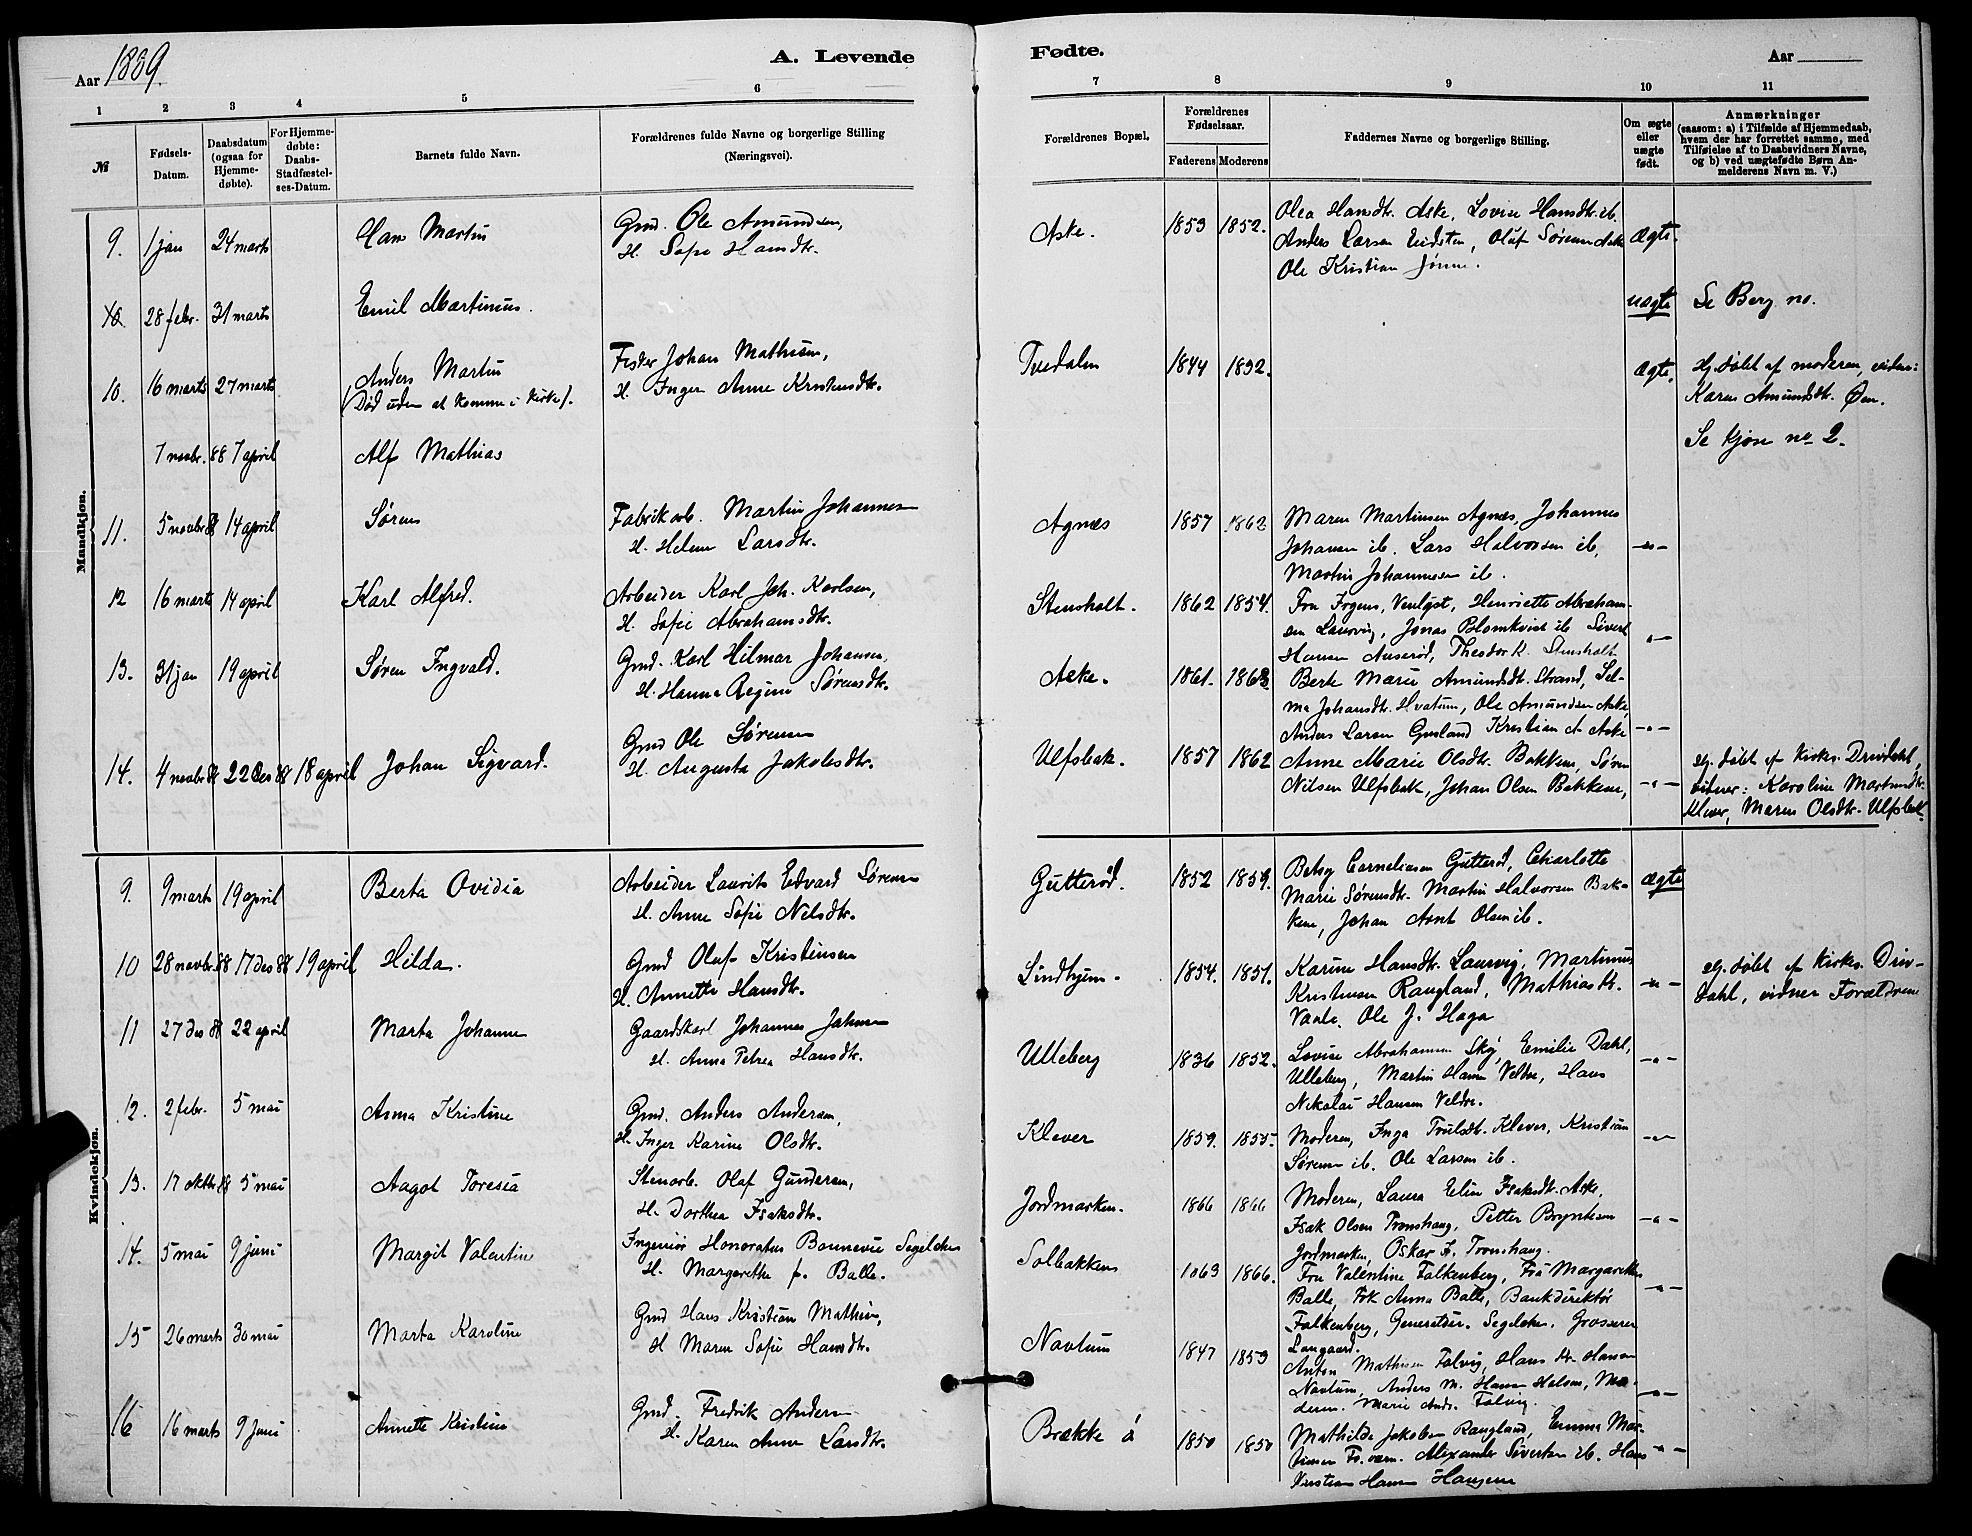 Aar 1889.
A. Levende
Fødte.
Aar
1 2 3 4 5 6 7 8 9 10 11
№
Fødsels-Datum.
Daabsdatum (ogsaa for Hjemmedøbte).
For Hjemmedøbte: Daabs-Stadfæstelses-Datum.
Barnets fulde Navn.
Forældrenes fulde Navne og borgerlige Stilling (Næringsvei).
Forældrenes Bopæl.
Forældrenes Fødselsaar.
Faderens Moderens
Faddernes Navne og borgerlige Stilling.
Om ægte eller uægte født.
Anmærkninger
(saasom: a) i Tilfælde af Hjemmedaab, hvem der har forrettet samme, med Tilføielse af to Daabsvidners Navne, og b) ved uægtefødte Børn Anmelderens Navn m. V.)
Mandkjøn.
9. 1 jan 24 marts Hans Martin Grnd. Ole Amundsen, Aske. 1853 1852. Olea Hansdtr. Aske, Lovise Hansdtr. ib.
H. Sofie Hansdtr. Anders Larsen Eidsten, Oluf Sørensen Aske Ægte.
Ole Kristian
10 28 febr. 31 marts Emil Martinius. uægte Se Berg no.
10. 16 marts 27 marts Anders Martin Fisker Johan Mathisen, Tvedalen 1844 1892. Ægte. Hj. døbt af moderen, vidne:
(Død uden at komme i kirke). H. Inger Anne Kristensdtr. Karen Amundsdtr. Øen.
7 novbr. 88 7 april Alf Mathias Se Kjose no 2.
11. 5 novbr 88 14 april Søren Fabrikarb. Martin Johannesen Agnæs 1857 1862 Maren Martinsen Agnæs, Johannes
H. Helene Larsdtr. Johansen ib. Lars Halvorsen ib, -"-
Martin Johannesen ib.
12 16 marts 14 april Karl Alfred. Arbeider Karl Joh. Karlsen, Stensholt. 1862 1854. Fru Irgens, Venlyst, Henriette Abraham-
H. Sofie Abrahamsdtr. sen Laurvig, Jonas Blomkvist ib Sivert -"-
Hansen Auserød, Theodor K. Stensholt
13. 31 jan 19 april Søren Ingvald. Grnd. Karl Hilmar Johansen, Aske. 1861. 1863. Berte Marie Amundsdtr. Strand, Sel-
H. Hanna Regine Sørensdtr. ma Johansdtr. Hvatum, Ole Amundsen Aske,
Anders Larsen Gusland Kristian A. Aske -"-
14. 4 novbr 88 22 des 88 18 april Johan Sigvard. Grnd Ole Sørensen Ulfsbak. 1857 1862 Anne Marie Olsdtr. Bakkene, Søren Hj. døbt af Kirkes. Drivdahl,
H. Augusta Jakobsdtr. Nilsen Ulfsbak, Johan Olsen Bakkene, -"- vidner: Karoline Martinsdtr.
Klever, Maren Olsdtr. Ulfsbak.
Kvindekjøn.
9. 9 marts 19 april Berta Ovidia Arbeider Laurits Edvard Sørensen Gutterød. 1852 1859. Betsy Corneliusen Gutterød, Charlotte Ægte
H. Anne Sofie Nilsdtr. Marie Sørensdtr. Martin Halvorsen Bak-
kene, Johan Arnt Olsen ib.
10 28 novbr. 88 17 des 88 19 april Hilda. Grnd Oluf Kristensen Lindhjem. 1854. 1851. Karine Hansdtr. Laurvig, Martinus Hj. døbt af Kirkes. Driv-
H. Annette Hansdtr. Kristensen Rangland, Mathiasdtr. -"- dahl, vidner Forældrene
Vaale. Ole J. Haga
11 27 des 88 22 april Marta Johanne Gaardskarl Johannes Jahnsen Ulleberg 1836 1852. Lovise Abrahamsen Sky, Emilie Dahl,
H. Anna Petrea Hansdtr. Ulleberg, Martin Hansen Veldre, Hans -"-
Nikolai Hansen Veldre.
12. 2 febr. 5 mai Anna Kristine Grnd. Anders Andersen, Klever 1859. 1855. Moderen, Inga Trulsdtr. Klever, Kristian -"-
H. Inger Karine Olsdtr. Sørensen ib. Ole Larsen ib.
13. 17 oktbr 88 5 mai Aagot Toresia Stenarb. Olaf Gundersen, Jordmarken. 1866 1866 Moderen, Laura Elin Isaksdtr. Aske,
H. Dorthea Isaksdtr. Isak Olsen Tronshaug, Petter Bryntesen -"-
Jordmarken, Oskar I. Tronshaug.
14. 5 mai 9 juni Margit Valentine Ingeniør Honoratus Bonnevie Segelcke Solbakken 1863 1866. Fru Valentine Falkenberg, Fru Margarethe
H. Margarethe f. Balle. Balle, Frk Anna Balle, Bankdirektør -"-
Falkenberg, Segelcke, Grosserer
Langaard.
15 26 marts 30 mai Marta Karoline Grnd Hans Kristian Mathisen, Navtum 1847 1853 Anton Mathisen Falvig, Hans Hansen
H. Maren Sofie Hansdtr. Navtum, Anders M. Hansen Halsen, Mo- -"-
deren. Marie Andr. Falvig.
16 16 marts 9 juni Annette Kristine Grnd. Fredrik Andersen Brække ø 1850 1850 Mathilde Jakobsen Rangland, Emma Mar-
H. Karen Anne Larsdtr. tinsen Alexander Sivertsen ib. Hans -"-
Kristian Hansen